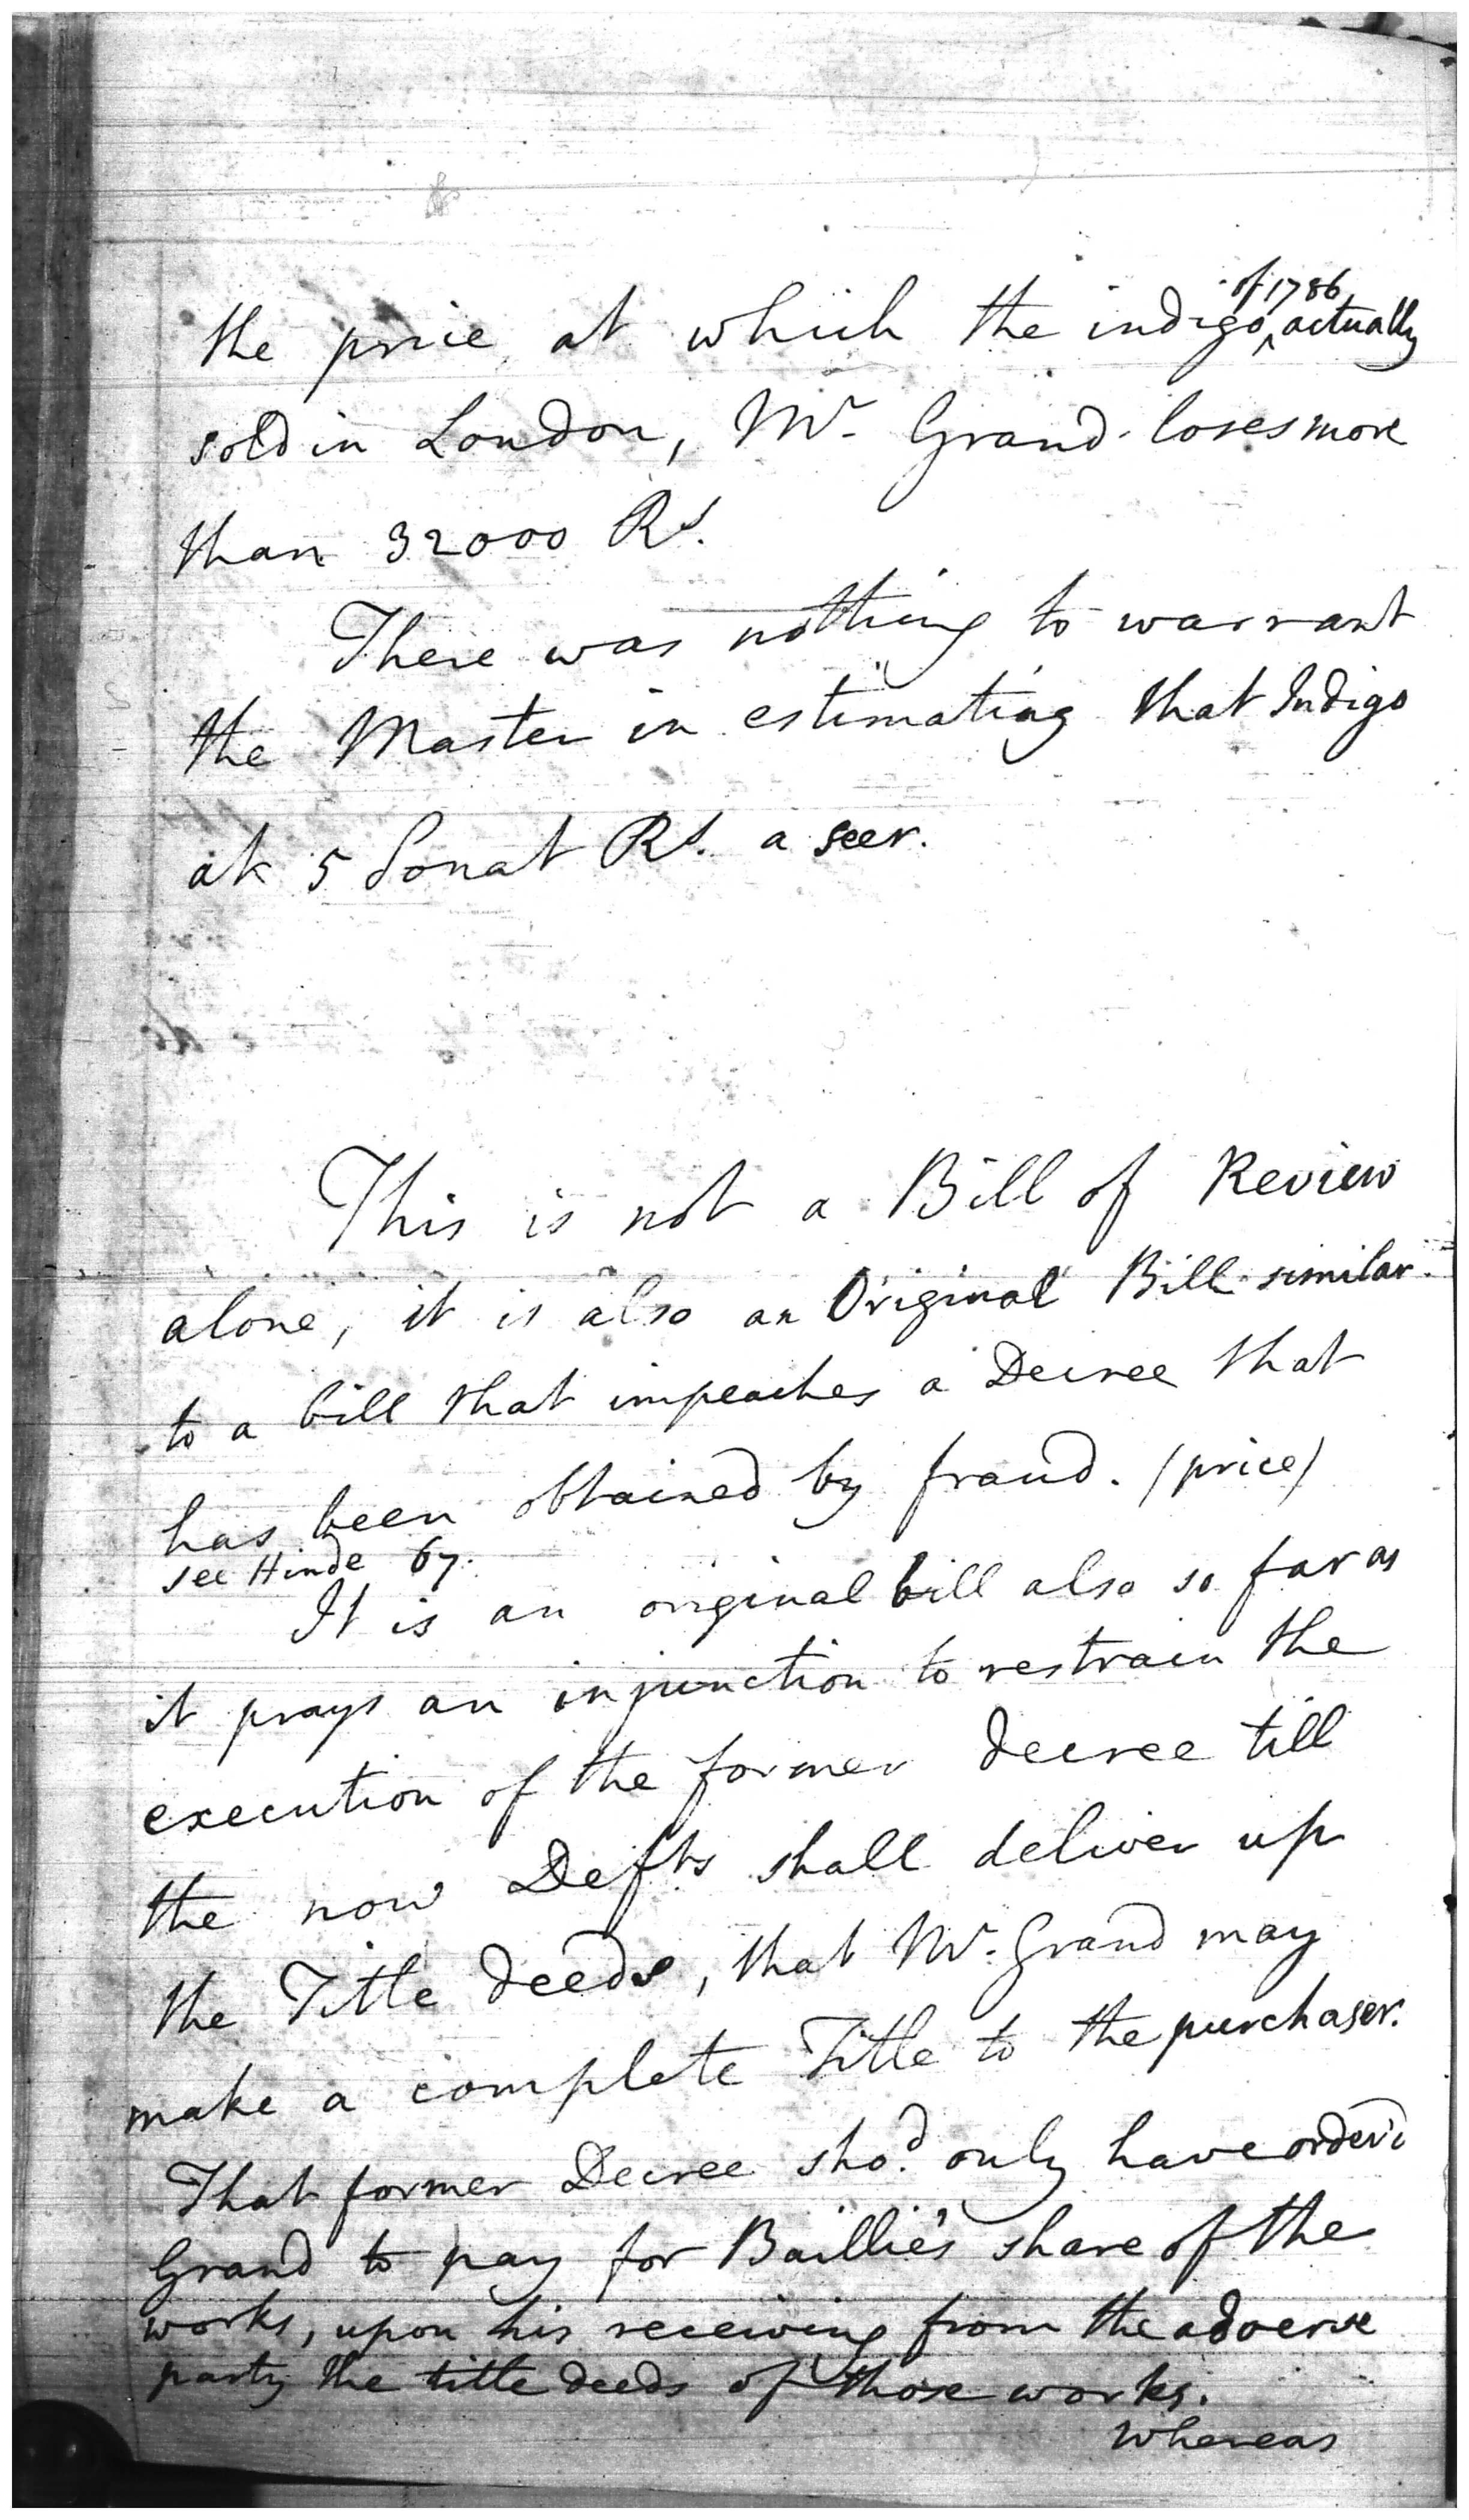 of 1786
the price at which the indigo ^ actually
sold in London, Mr. Grand loses more
than 32000 Rs.
There was nothing to warrant
the Master in estimating that Indigo
at 5 Sonat Rs. a seer.
This is not a Bill of Review
alone, it is also an Original Bill similar
to a bill that impeaches a Decree that
has been obtained by fraud. (price)
see Hinde 67.
It is an original bill also so far as
it prays an injunction to restrain the
execution of the former decree till
the now Defts shall deliver up
the Title deeds, that Mr. Grand may
make a complete Title to the purchaser.
That former Decree shod. only have order'd
Grand to pay for Baillie's share of the
works, upon his receiving from the adverse
party the title deeds of those works.
Whereas